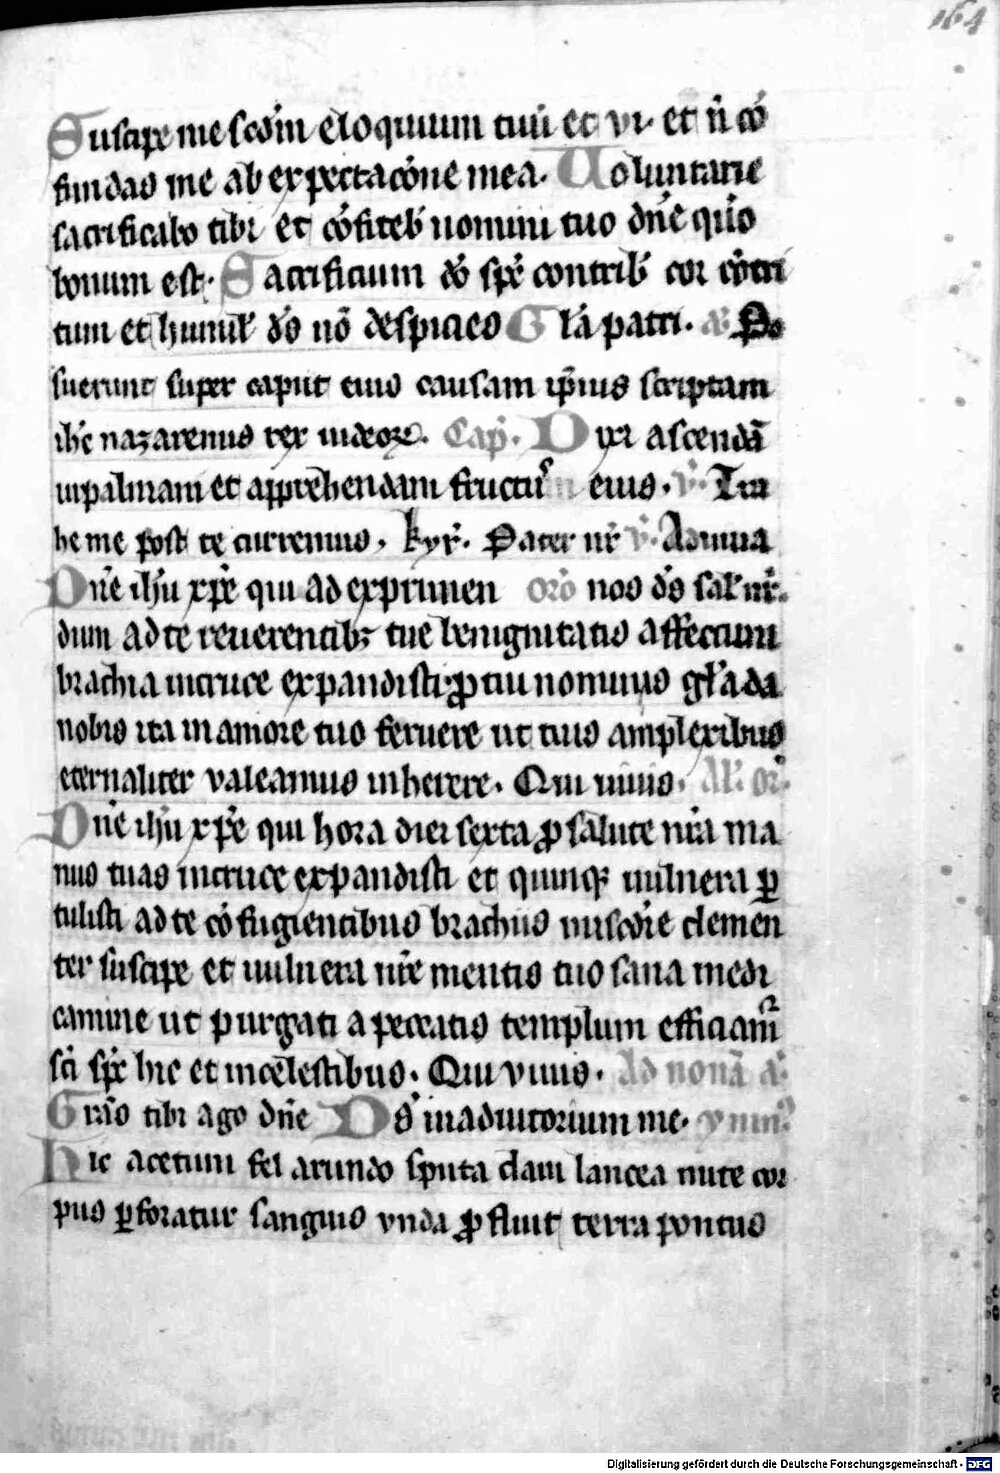 164
Suscipe me scdm eloquium tuū et viv et nō cō
fundas me ab expectacōne mea. Voluntarie
sacrificabo tibi et cōfitebʼ nomini tuo dn̄e qm̄
bonum est. Sacrificium dō spc̄ contribʼ cor cōtri
tum et humilʼ ds̄ nō despicies Glā patri. aʼ. Po
suerunt super caput eius causam ip̄ius scriptam
ihc̄ nazarenus rex iudeoꝝ. Capʼ. Dixi ascendā
in palmam et apprehendam fructū eius. v. Tra
he me post te curremus. kyrʼ. Pater nr̄ v. Adiuua
Dn̄e ihū xp̄e qui ad exprimen orō nos ds̄ salʼ nrʼ.
dum ad te reuerentibꝫ tue benignitatis affectum
brachia in cruce expandisti ꝓ tui nominis glʼa da
nobis ita in amore tuo feruere ut tuis amplexibus
eternaliter valeamus inherere. Qui uiuis. Alʼ orʼ.
Dn̄e ihū xp̄e qui hora diei sexta ꝓ salute nrā ma
nus tuas in cruce expandisti et quinqꝫ uulnera ꝑ
tulisti ad te cōfugientibus brachiis misc̄die clemen
ter suscipe et uulnera nr̄e mentis tuo sana medi
camine ut purgati a peccatis templum efficiamʼ
sc̄i spc̄ hic et in celestibus. Qui viuis. Ad nonā aʼ.
Grās tibi ago dn̄e Ds̄ in adiutorium me. ymnʼ.
Hic acetum fel arundo sputa claui lancea mite cor
pus ꝑforatur sanguis vnda ꝓfluit terra pontus
Digitalisierung gefördert durch die Deutsche Forschungsgemeinschaft - DFG